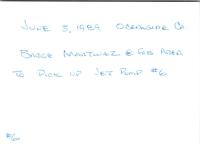 JUNE 5, 1989 OCEANSIDE CA
BRUCE MARTINEZ @ FOB AREA
TO PICK UP JET PUMP #6
#6